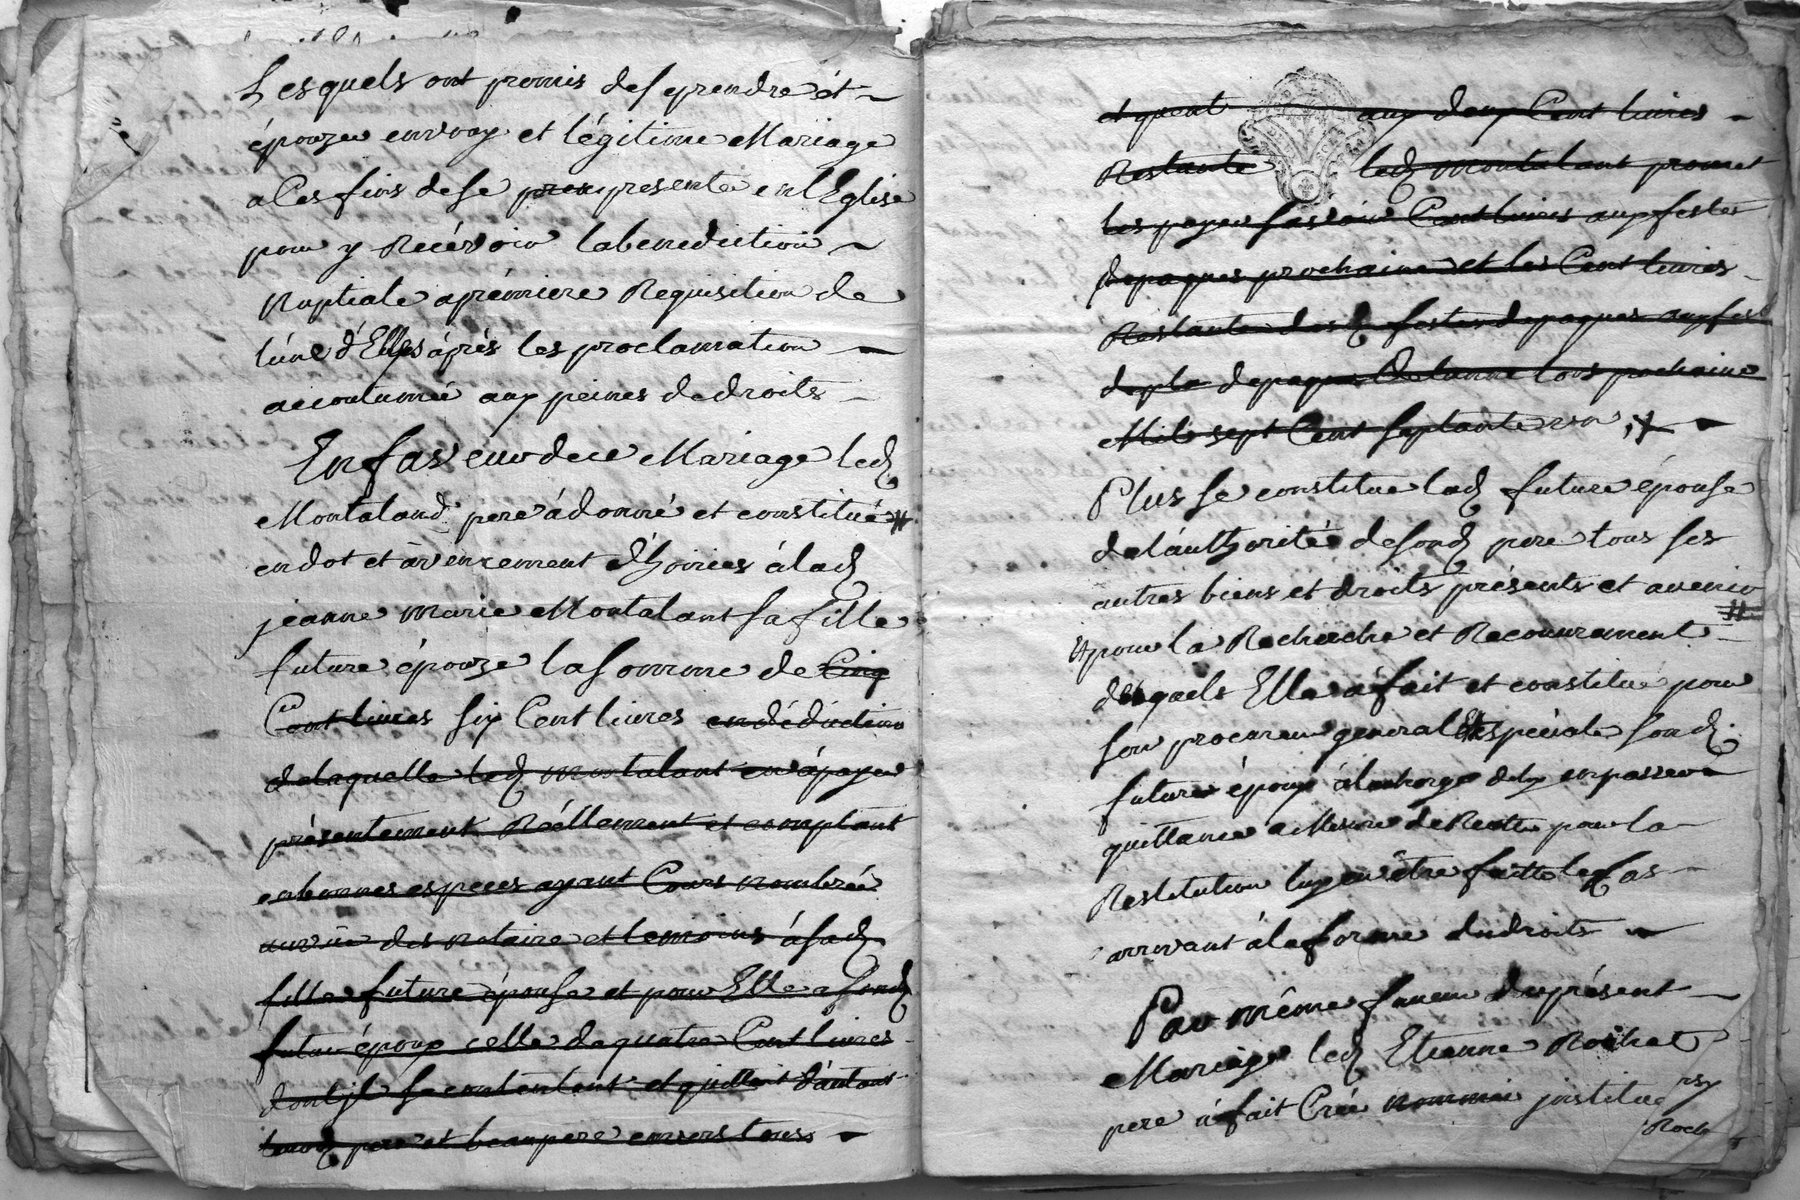 Lesquels ont promis de se prendre et
épouzer en vray et légitime Mariage
a Ces fins de se presenter en l'Eglise
pour y Recévoir la benediction
Nuptiale a prémiere Requisition de
lúne d'Elles áprés les proclamation
accoutumée aux peines de droits
En faveur de ce Mariage led
Montaland pere á donné et constitué #
en dot et avencement d'hoiries á lad
jeanne Marie Montalant sa fille
future épouze la somme de Cinq
Cent livres six Cent livres en déduction
de laquelle led Montalant en á payer
présentement Réellement et comptant
en bonnes especes ayant Cours nombrée
au vû des notaire et temoins á sad
fille future épouse et pour Elle a sond
futur époux celle de quatre Cent livres
dont jl se contentent et quittent d'autant
pere et beaupere envers tous
et quant aux deux Cent livres
Restante led Montalant promet
les payer sçavoir Cent livres aux festes
de paques prochaine et les Cent livres
Restante desd festes de paques aux festes
de paques de l'année prochaine
Mil sept Cent septante
Plus se constitue lad future épouse
de l'authorité de sond pere tous ses
autres biens et droits présents et avenir
# pour la Recherche et Recouvrement
desquels Elle á fait et constitué pour
son procureur general Et spéciale sond
future époux á la charge d'en passer
quittance a Mesure de Recette pour la
Restitution luy en être faitte le Cas
arrivant á la forme du droits
Par même faveur du présent
Mariage led Etienne Rochet
pere á fait Créé nommée jnstitue
Roch